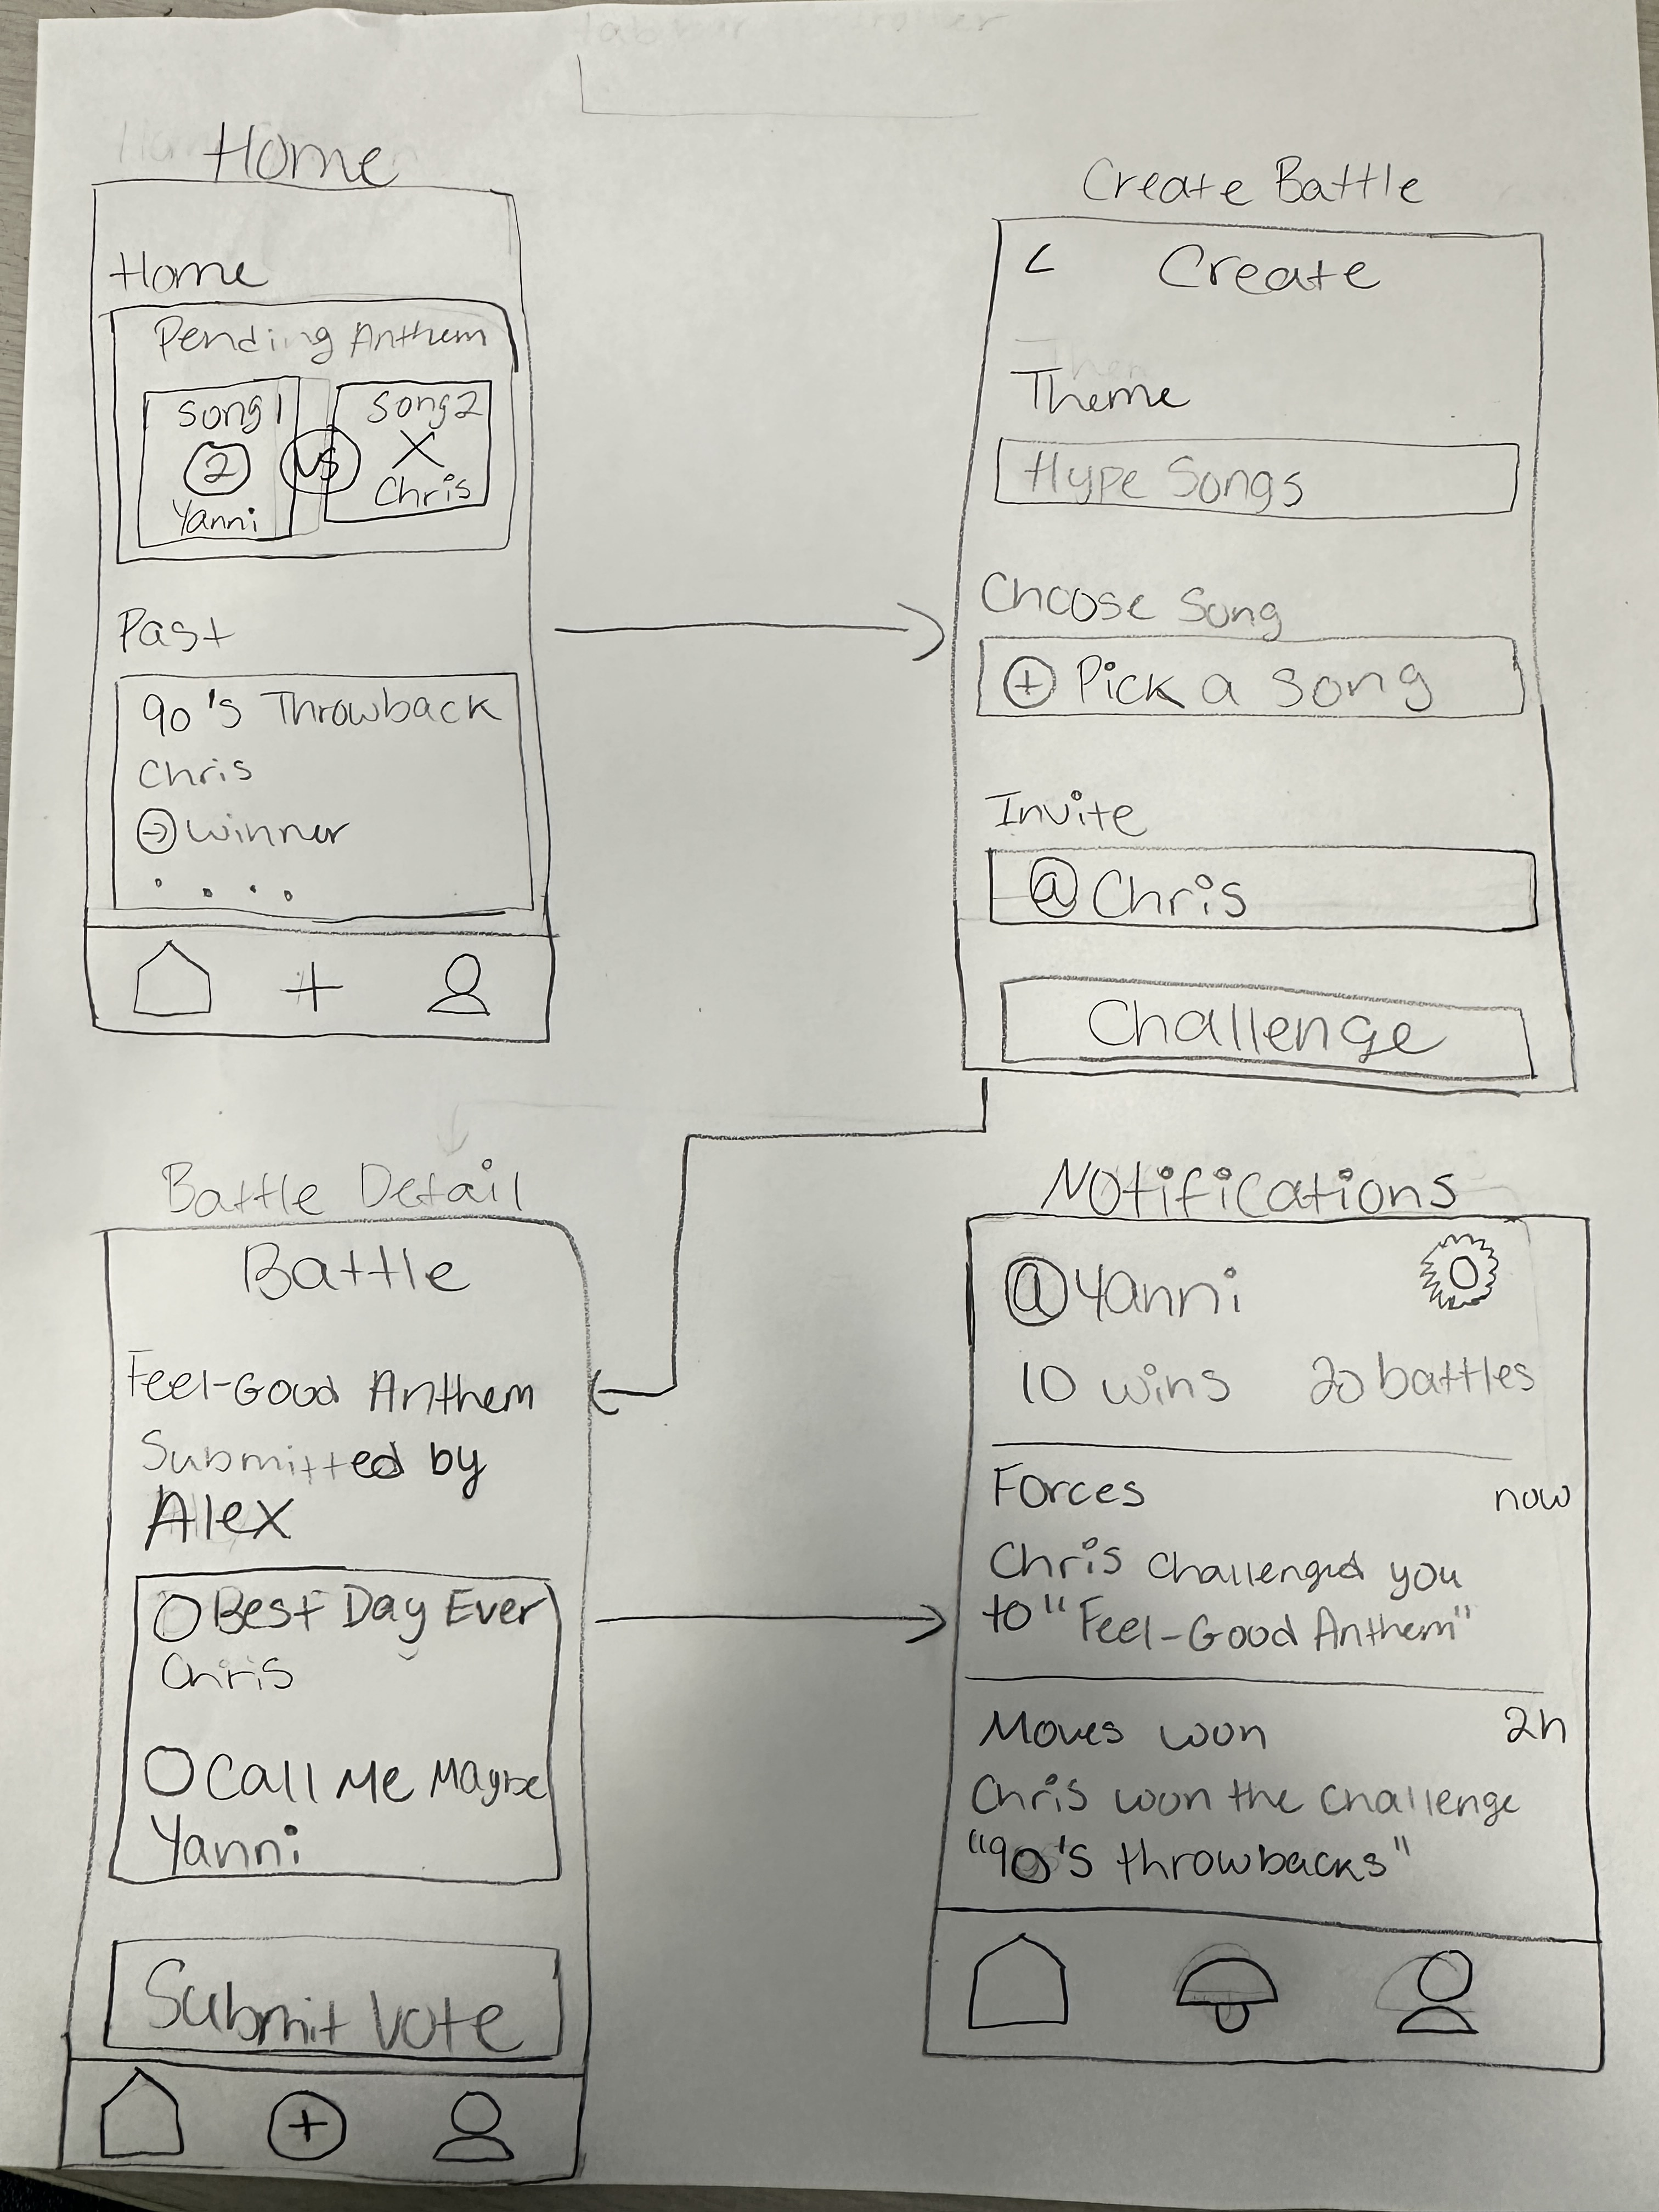 Home
Home
Pending Anthem
Song 1
2
Yanni
VS
Song 2
X
Chris
Past
90's Throwback
Chris
winner
Create Battle
< Create
Theme
Hype Songs
Choose Song
+ Pick a song
Invite
@ Chris
Challenge
Battle Detail
Battle
Feel-Good Anthem
Submitted by
Alex
Best Day Ever
Chris
Call Me Maybe
Yanni
Submit Vote
Notifications
@Yanni
10 wins 20 battles
Forces now
Chris challenged you
to "Feel-Good Anthem"
Moves won 2h
Chris won the challenge
"90's throwbacks"